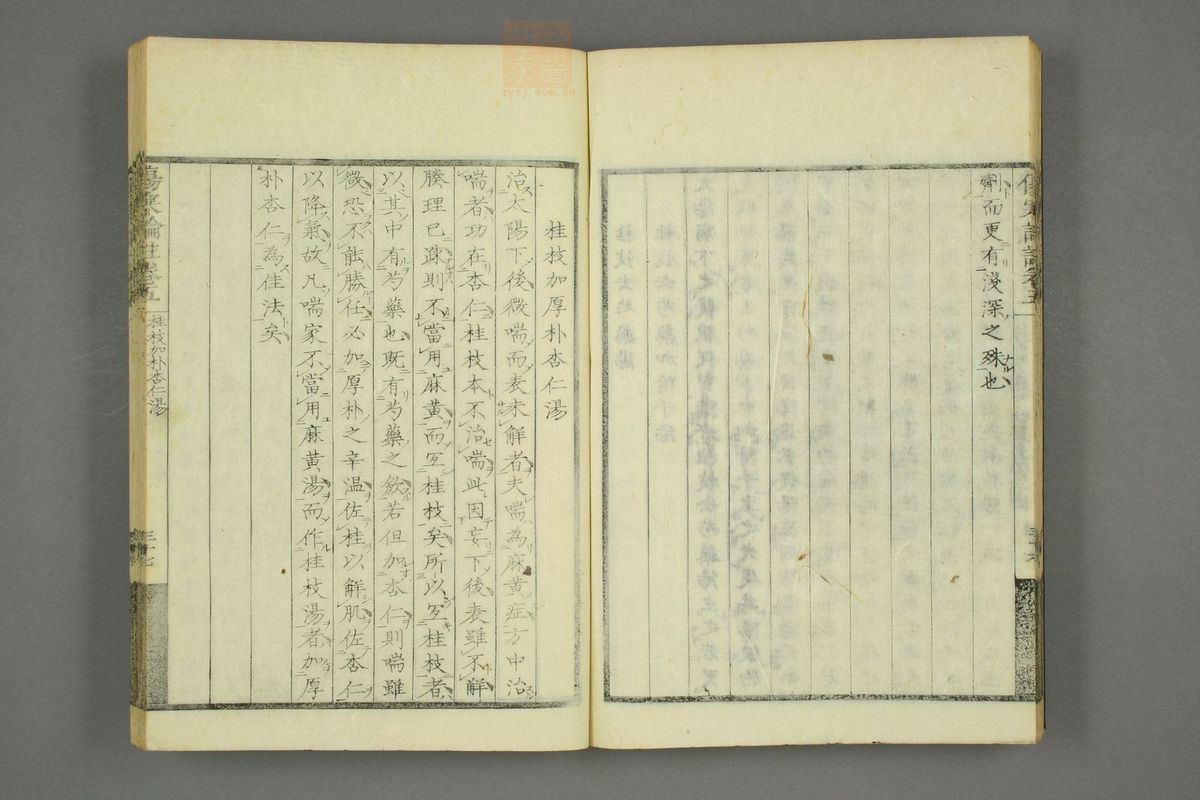 劑而更有淺深之殊也
桂枝加厚朴杏仁湯
治太陽下後微喘而表未解者夫喘為麻黃症方中治
喘者功在杏仁桂枝本不治喘此因妄下後表雖不解
腠理已疎則不當用麻黃而宜桂枝矣所以宜桂枝者
以其中有芍藥也既有芍藥之斂若但加杏仁則喘雖
微恐不能勝任必加厚朴之辛溫佐桂以解肌佐杏仁
以降氣故凡喘家不當用麻黃湯而作桂枝湯者加厚
朴杏仁為佳法矣
桂枝加朴杏仁湯
zysj.com.cn